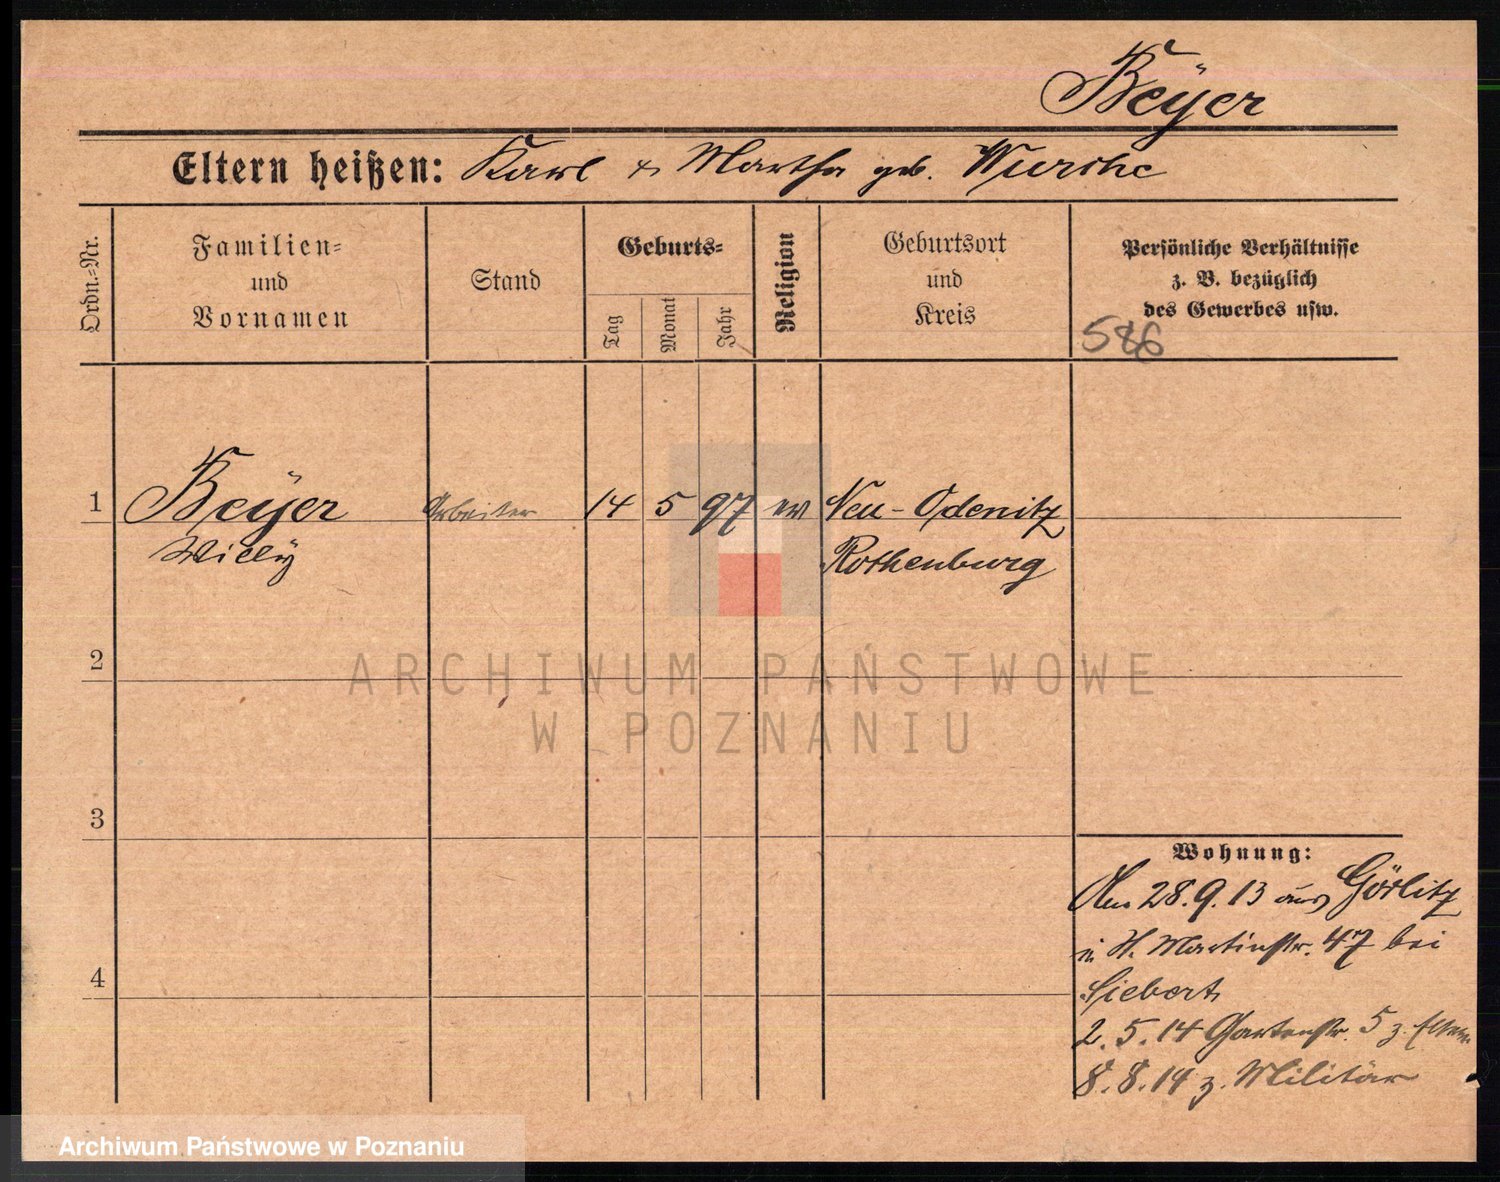 Beÿer
Eltern heißen: Karl & Martha geb. Wursthe
Ordn.-Nr.
Familien-
und
Vornamen
Stand
Geburts-
Tag
Monat
Jahr
Religion
Geburtsort
und
Kreis
Persönliche Verhältnisse
z. B. bezüglich
des Gewerbes usw.
586
1 Beÿer Arbeiter 14 5 97 ev Neu-Odernitz
Willÿ Rothenburg
2
3
4
Wohnung:
Am 28.9.13 aus Görlitz
in St. Martinstr. 47 bei
Siebert
2.5.14 Gartenstr. 5 z. Eltern
8.8.14 z. Militär
ARCHIWUM PAŃSTWOWE
W POZNANIU
Archiwum Państwowe w Poznaniu